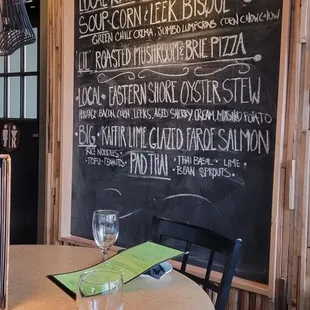 LOCAL
SOUP·CORN & LEEK BISQUE
GREEN CHILE CREMA, JUMBO LUMP CRAB, CORN CHOW CHOW
LIL' ROASTED MUSHROOM & BRIE PIZZA
·LOCAL· EASTERN SHORE OYSTER STEW
BACON, CORN, LEEKS, AGED SHERRY, CREAM, MASHED POTATO
·BIG· KAFFIR LIME GLAZED FAROE SALMON
·RICE NOODLES·
·TOFU·PEANUTS
PAD THAI
·THAI BASIL· LIME
·BEAN SPROUTS·